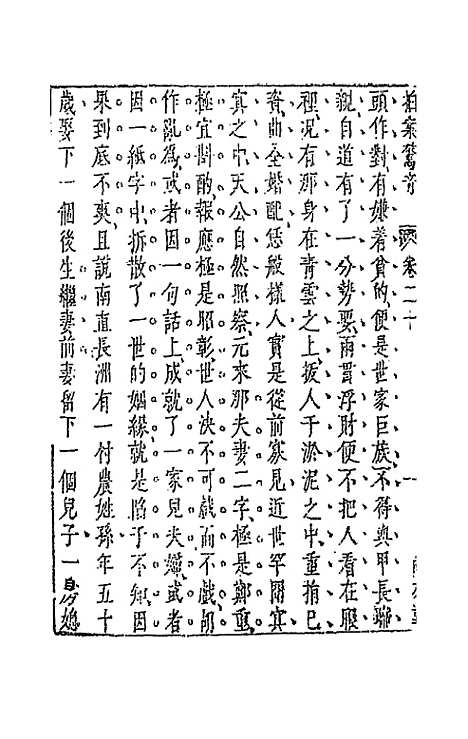 拍案驚奇　卷二十　一
頭作對有嫌着貧的便是世家巨族不得與甲長聯
親自道有了一分勢要兩貫浮財便不把人看在眼
裡況有那身在青雲之上拔人于淤泥之中重捐己
資曲全婚配恁般樣人實是從前寡見近世罕聞冥
冥之中天公自然照察元來那夫妻二字極是鄭重
極宜斟酌報應極是昭彰世人決不可戲而不戲胡
作亂為或者因一句話上成就了一家兒夫婦或者
因一紙字中拆散了一世的姻緣就是陷于不知因
果到底不爽且說南直長洲有一村農姓孫年五十
歲娶下一個後生繼妻前妻留下一個兒子一房媳